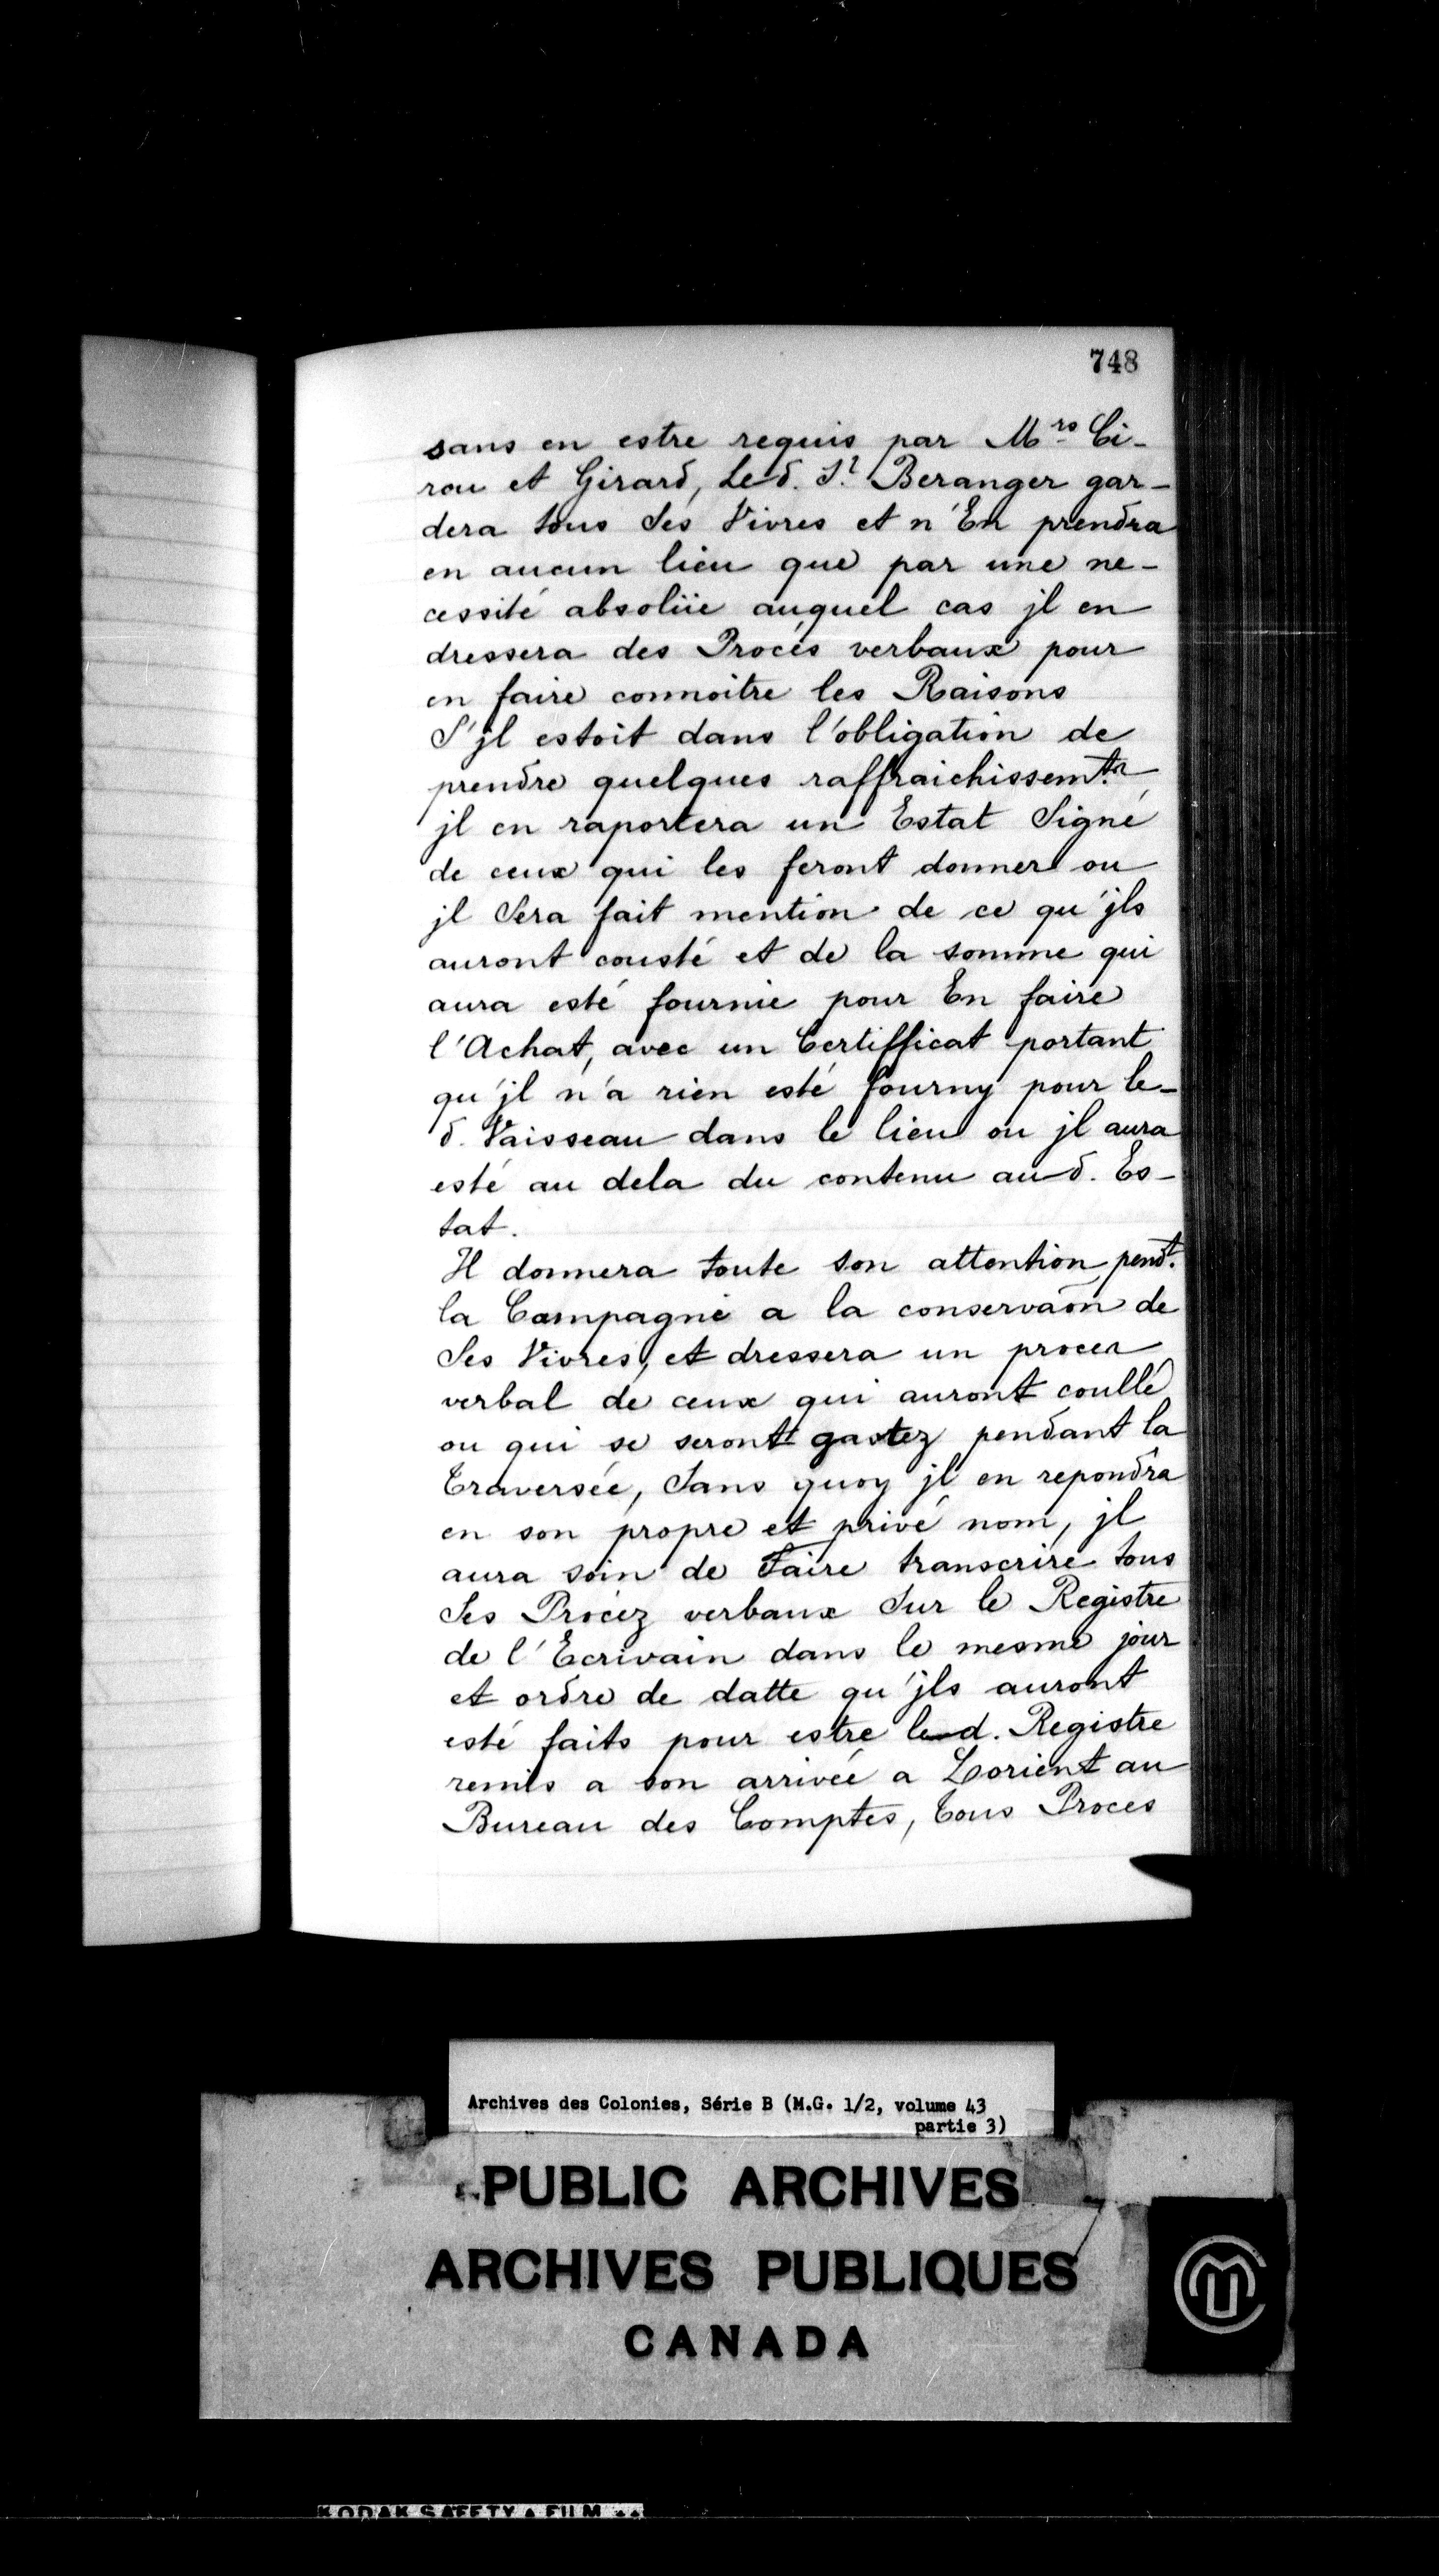 748
sans en estre requis par M.rs Ci-
rou et Girard, Led. S.r Beranger gar-
dera tous Ses Vivres et n'En prendra
en aucun lieu que par une ne-
cessité absolüe auquel cas jl en
dressera des Procés verbaux pour
en faire connoitre les Raisons
S'jl estoit dans l'obligation de
prendre quelques raffraichissem.ts
jl en raportera un Estat Signé
de ceux qui les feront donner ou
jl Sera fait mention de ce qu'jls
auront cousté et de la somme qui
aura esté fournie pour En faire
l'Achat, avec un Certifficat portant
qu'jl n'a rien esté fourny pour le-
d. Vaisseau dans le lieu ou jl aura
esté au dela du contenu aud. Es-
tat.
Il donnera toute son attention pend.t
la Campagne a la conservaõn de
Ses Vivres, et dressera un proces
verbal de ceux qui auront coullé
ou qui se seront gastez pendant la
Traversée, Sans quoy jl en repondra
en son propre et privé nom, jl
aura soin de Faire transcrire tous
Ses Procéz verbaux Sur le Registre
de l'Ecrivain dans le mesme jour
et ordre de datte qu'jls auront
esté faits pour estre led. Registre
remis a son arrivée a Lorient au
Bureau des Comptes, Tous Proces
Archives des Colonies, Série B (M.G. 1/2, volume 43
partie 3)
PUBLIC ARCHIVES
ARCHIVES PUBLIQUES
CANADA
KODAK SAFETY FILM